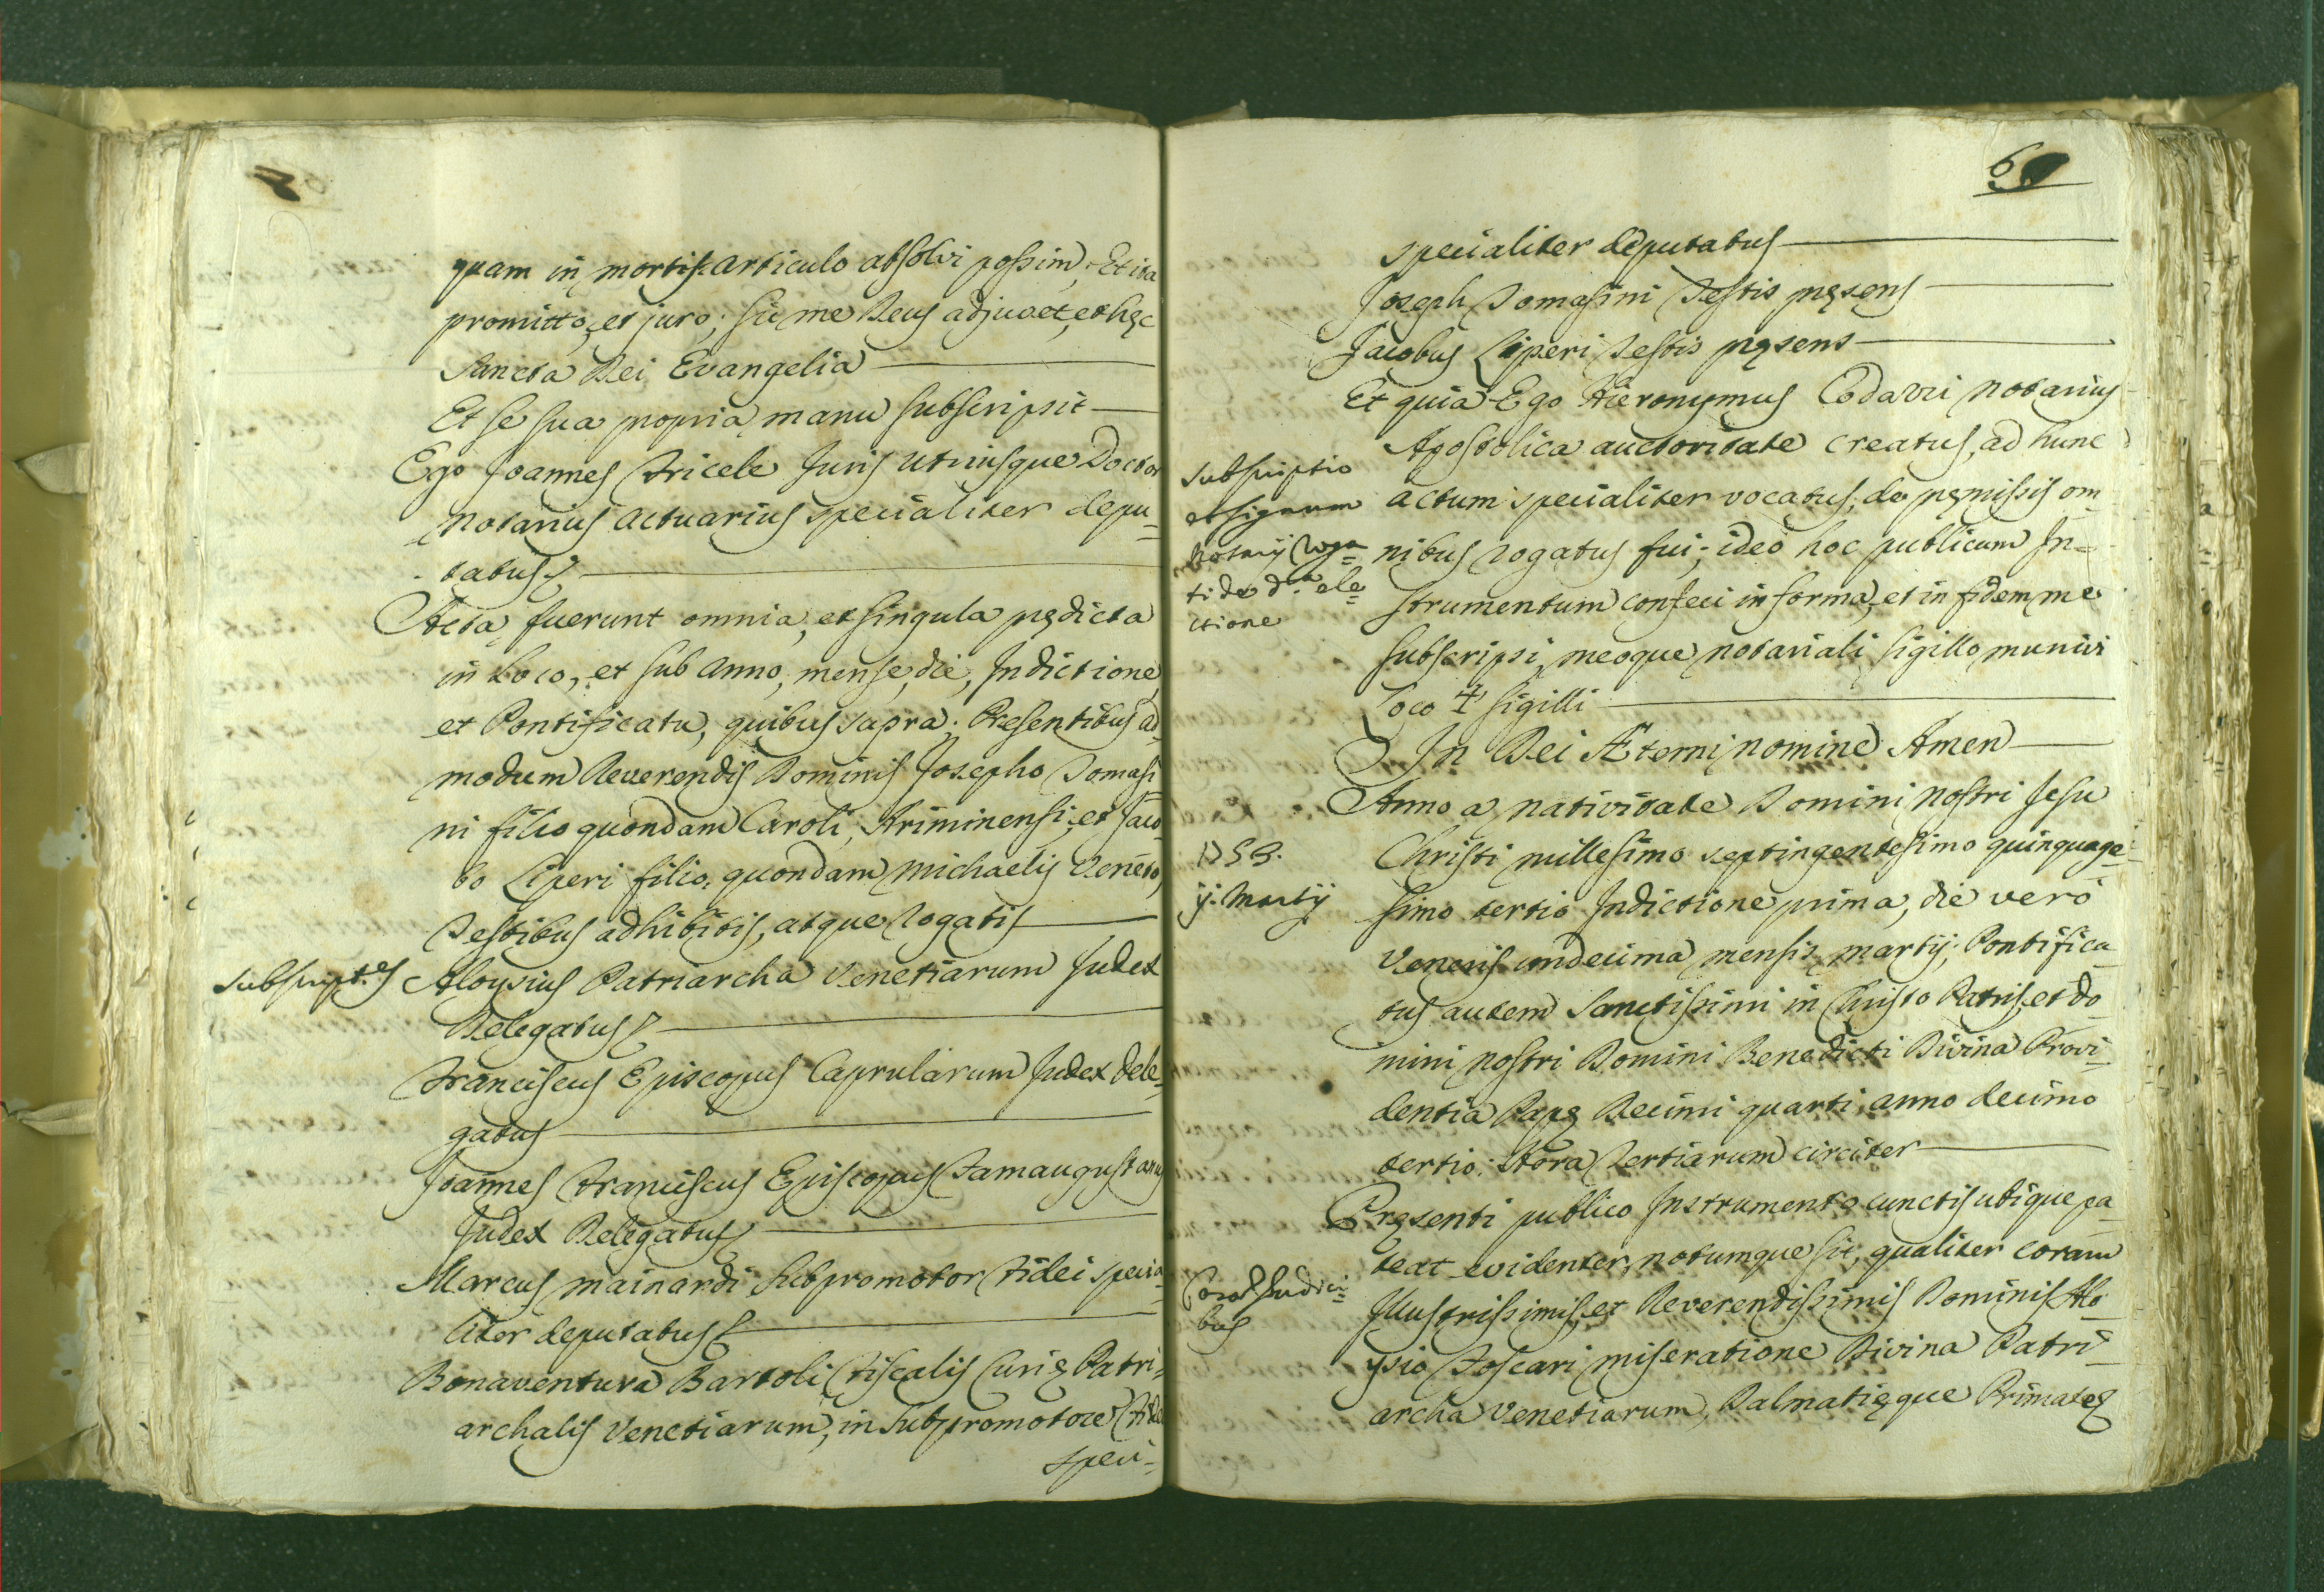 quam in mortis articulo absolvi possim, Et ita
promitto, et juro; sic me Deus adjuvet, et hęc
Sancta Dei Evangelia
Et se sua propria manu subscripsit
Ego Joannes Fricele Juris Utriusque Doctor
Notarius Actuarius specialiter depu=
tatus
Acta fuerunt omnia, et singula prędicta
in Loco, et sub Anno, mense, die, Indictione,
et Pontificatu, quibus supra. Presentibus ad=
modum Reverendis Dominis Josepho Tomasi=
ni filio quondam Caroli, Ariminensi; et Jaco=
bo Liperi filio quondam Michaelis Veneto,
Testibus adhibitis, atque rogatis
subscript.es
Aloysius Patriarcha Venetiarum Judex
Delegatus
Franciscus Episcopus Caprularum Judex Dele=
gatus
Joannes Franciscus Episcopus Famaugustanus
Judex Delegatus
Marcus Mainardi Subpromotor Fidei specia=
liter deputatus
Bonaventura Bartoli Fiscalis Curię Patri=
archalis Venetiarum, in Subpromotore Fidei
speci=
60
specialiter deputatus
Joseph Tomasini Testis pręsens
Jacobus Liperi Testis pręsens
Et quia Ego Hieronymus Codarri Notarius
Apostolica auctoritate creatus, ad hunc
subscriptio
et signum
Notarij roga=
ti de d.a ele=
ctione
actum specialiter vocatus, de pręmissis om=
nibus rogatus fui; ideò hoc publicum In=
strumentum confeci in forma, et in fidem me
subscripsi, meoque notariali sigillo munivi
Loco ✝ sigilli
In Dei Æterni nomine Amen
Anno a nativitate Domini Nostri Jesu
1753.
ij. Martij
Christi millesimo septingentesimo quinquage=
simo tertio Indictione prima, die verò
Veneris undecima mensis Martij; Pontifica=
tus autem Sanctissimi in Christo Patris, et Do=
mini nostri Domini Benedicti Divina Provi=
dentia Papę Decimi quarti, anno decimo
tertio: Hora Tertiarum circiter
Pręsenti publico Instrumento cunctis ubique pa=
teat evidenter, notumque sit, qualiter coram
Cora Judici=
bus
Illustrissimis, et Reverendissimis Dominis Alo=
ysio Foscari miseratione Divina Patri=
archa Venetiarum, Dalmatięque Primate